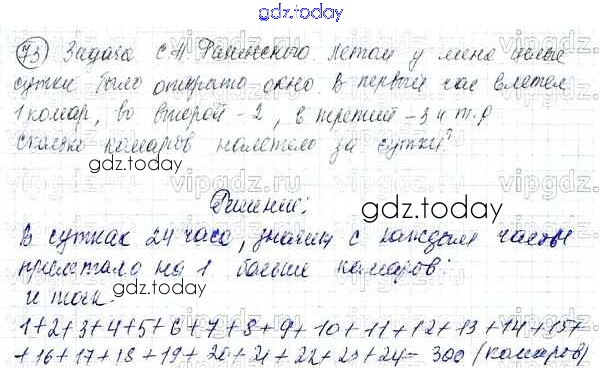 gdz.today
73 Задача С.А. Рачинского. Летом у меня целые
сутки было открыто окно. В первый час влетел
1 комар, во второй - 2, в третий - 3 и т.д
сколько комаров налетело за сутки?
gdz.today
Решение:
gdz.today
В сутках 24 часа, значит с каждым часом
прилетало на 1 больше комаров.
и так:
1+2+3+4+5+6+7+8+9+10+11+12+13+14+15+
+16+17+18+19+20+21+22+23+24= 300 (комаров)
gdz.today